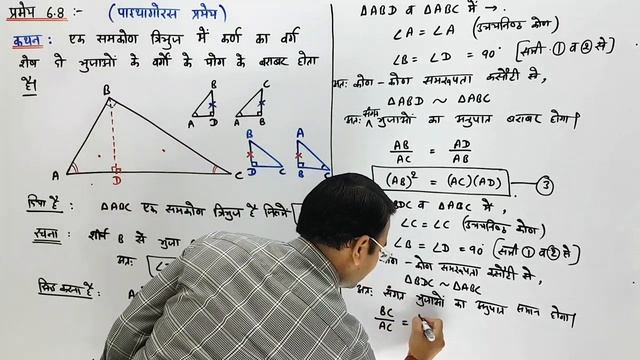 प्रमेय 6.8 :— (पाइथागोरस प्रमेय)
कथन : एक समकोण त्रिभुज में कर्ण का वर्ग
शेष दो भुजाओं के वर्गों के योग के बराबर होता
है।
B
A
D
C
B
A
D
C
A
B
B
D
C
A
B
C
दिया है : ΔABC एक समकोण त्रिभुज है जिसमें
रचना : शीर्ष B से भुजा
अतः
सिद्ध करना है :
ΔABD व ΔABC में →
∠A = ∠A (उभयनिष्ठ कोण)
∠B = ∠D = 90° [समी० ① व ② से]
अतः कोण - कोण समरूपता कसौटी से,
ΔABD ~ ΔABC
अतः संगत भुजाओं का अनुपात बराबर होगा।
AB/AC = AD/AB
(AB)² = (AC)(AD) — ③
BDC व ΔABC में,
∠C = ∠C (उभयनिष्ठ कोण)
∠B = ∠D = 90° [समी० ① व ② से]
कोण - कोण समरूपता कसौटी से,
ΔBDC ~ ΔABC
अतः संगत भुजाओं का अनुपात समान होगा।
BC/AC =